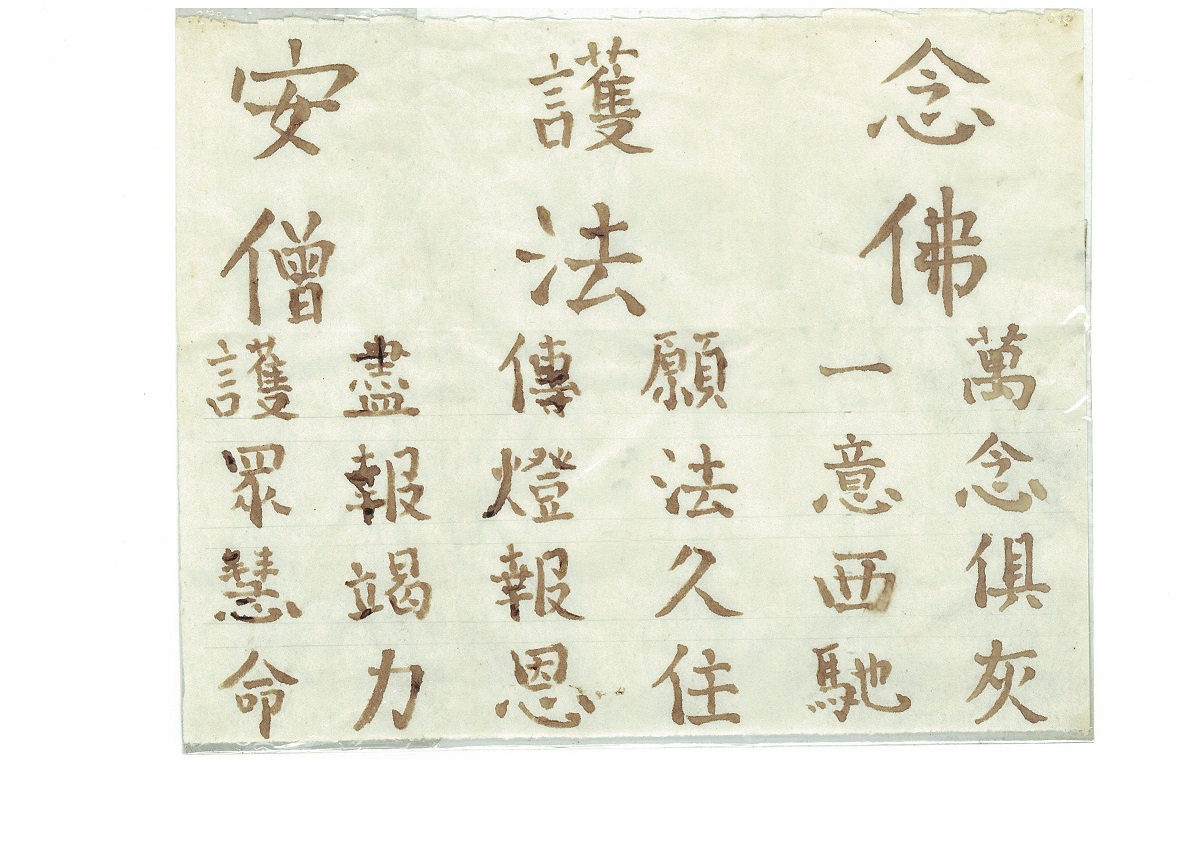 念佛
萬念俱灰
一意西馳
護法
願法久住
傳燈報恩
安僧
盡報竭力
護眾慧命